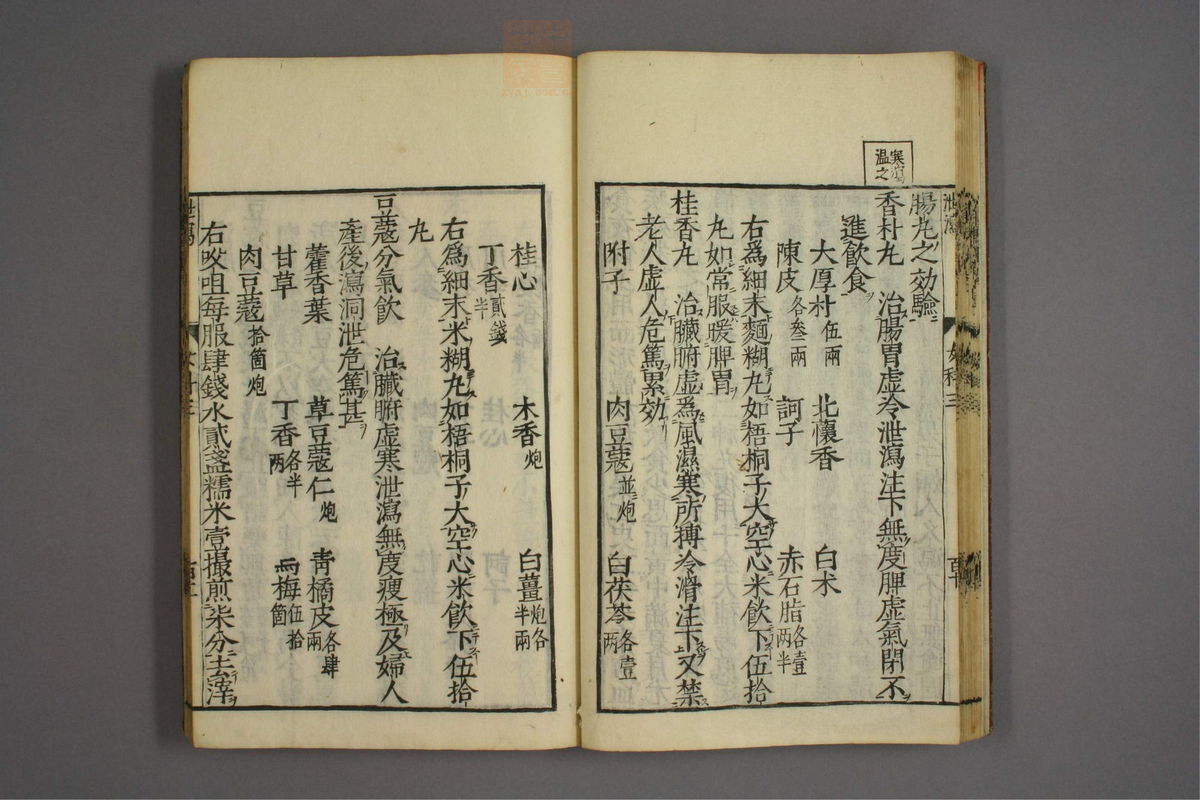 寒瀉
温之
腸丸之効驗
香朴丸　治腸胃虚冷泄瀉注下無度脾虚氣閉不
進飲食
大厚朴伍兩　北懷香　白朮
陳皮各叁兩　訶子　赤石脂各壹兩半
右爲細末麵糊丸如梧桐子大空心米飲下伍拾
丸如常服暖脾胃
桂香丸　治臟腑虚爲風濕寒所搏冷滑注下又禁
老人虚人危篤累効
附子　肉豆蔻並炮　白茯苓各壹兩
桂心　木香炮　白薑炮各半兩
丁香貳錢半
右爲細末米糊丸如梧桐子大空心米飲下伍拾
丸
豆蔻分氣飲　治臟腑虚寒泄瀉無度瘦極及婦人
產後瀉洞泄危篤甚
藿香葉　草豆蔻仁炮　青橘皮各肆兩
甘草　丁香各半兩　烏梅伍拾箇
肉豆蔻拾箇炮
右㕮咀每服肆錢水貳盞糯米壹撮煎柒分去滓
泄瀉